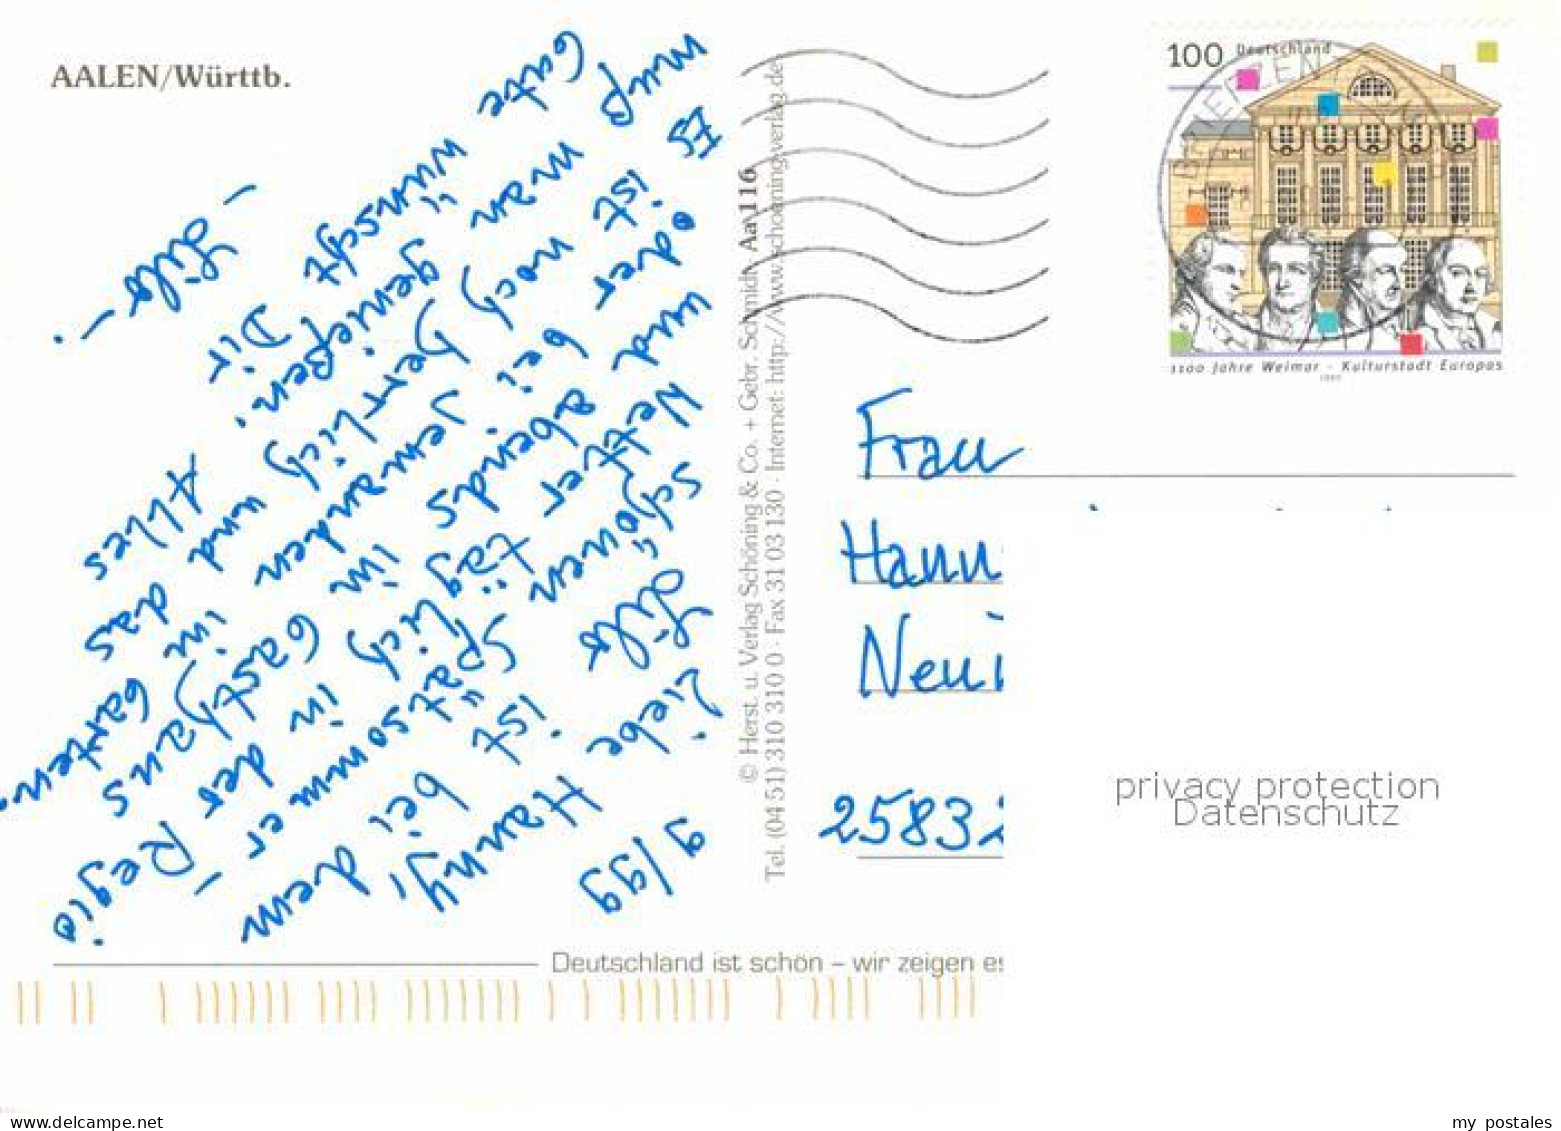 AALEN/Württb.
9/99
Liebe Hanny,
Lilo ist bei dem
schönen Spätsommer-
Wetter täglich in der Regio
und abends im Gasthaus
oder bei jemanden im Garten.
Es ist noch herrlich und das
muß man genießen. Alles
Gute wünscht Dir
- Lilo -.
© Herst. u. Verlag Schöning & Co. + Gebr. Schmidt Aa 116
Tel. (04 51) 310 310 0 · Fax 31 03 130 · Internet: http://www.schoening-verlag.de
100 Deutschland
1100 Jahre Weimar - Kulturstadt Europas
1999
Frau
Hann
Neu
25832
privacy protection
Datenschutz
Deutschland ist schön – wir zeigen es
my postales